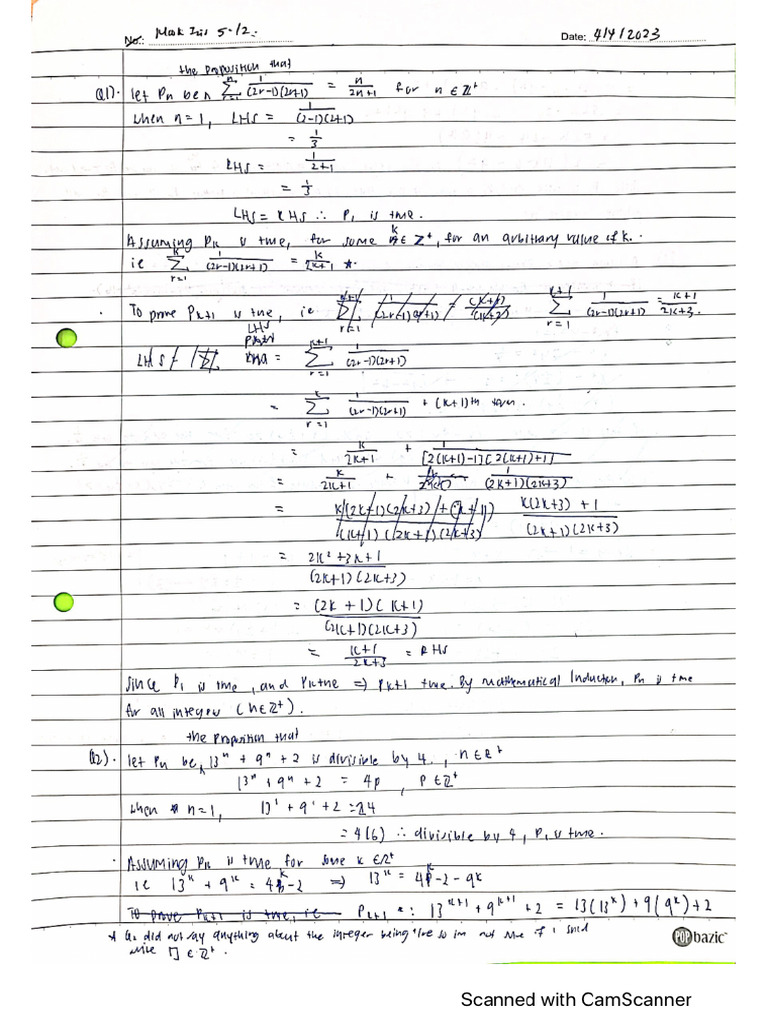 No.: Mak Iris 5-12.
Date: 4/4/2023
the proposition that
Q1). let Pn be ∧ Σ(r=1 to n) 1/((2r-1)(2r+1)) = n/(2n+1) for n ∈ Z⁺
when n=1, LHS = 1/((2-1)(2+1))
= 1/3
RHS = 1/(2+1)
= 1/3
LHS = RHS ∴ P₁ is true.
Assuming Pk is true, for some k ∈ Z⁺, for an arbitrary value of k.
ie Σ(r=1 to k) 1/((2r-1)(2r+1)) = k/(2k+1) *
To prove Pk+1 is true, ie Σ(r=1 to k+1) 1/((2r-1)(2r+1)) = (k+1)/(2k+3).
LHS
= Σ(r=1 to k+1) 1/((2r-1)(2r+1))
= Σ(r=1 to k) 1/((2r-1)(2r+1)) + (k+1)th term.
= k/(2k+1) + 1/([2(k+1)-1][2(k+1)+1])
= k/(2k+1) + 1/((2k+1)(2k+3))
= (k(2k+3) + 1)/((2k+1)(2k+3))
= (2k² + 3k + 1)/((2k+1)(2k+3))
= (2k + 1)(k+1)/((2k+1)(2k+3))
= (k+1)/(2k+3) = RHS
Since P₁ is true, and Pk true => Pk+1 true. By mathematical Induction, Pn is true
for all integer (n∈Z⁺).
the proposition that
Q2). let Pn be ∧ 13ⁿ + 9ⁿ + 2 is divisible by 4, n∈Z⁺
13ⁿ + 9ⁿ + 2 = 4p, p∈Z⁺
when n=1, 13¹ + 9¹ + 2 = 24
= 4(6) ∴ divisible by 4, P₁ is true.
Assuming Pk is true for some k ∈ Z⁺
ie 13ᵏ + 9ᵏ = 4k-2 => 13ᵏ = 4k-2-9ᵏ
To prove Pk+1 is true, ie Pk+1 : 13ᵏ⁺¹ + 9ᵏ⁺¹ + 2 = 13(13ᵏ) + 9(9ᵏ) + 2
* Q2 did not say anything about the integer being +ive so im not sure if i should
write [] ∈ Z⁺.
POP bazic
Scanned with CamScanner